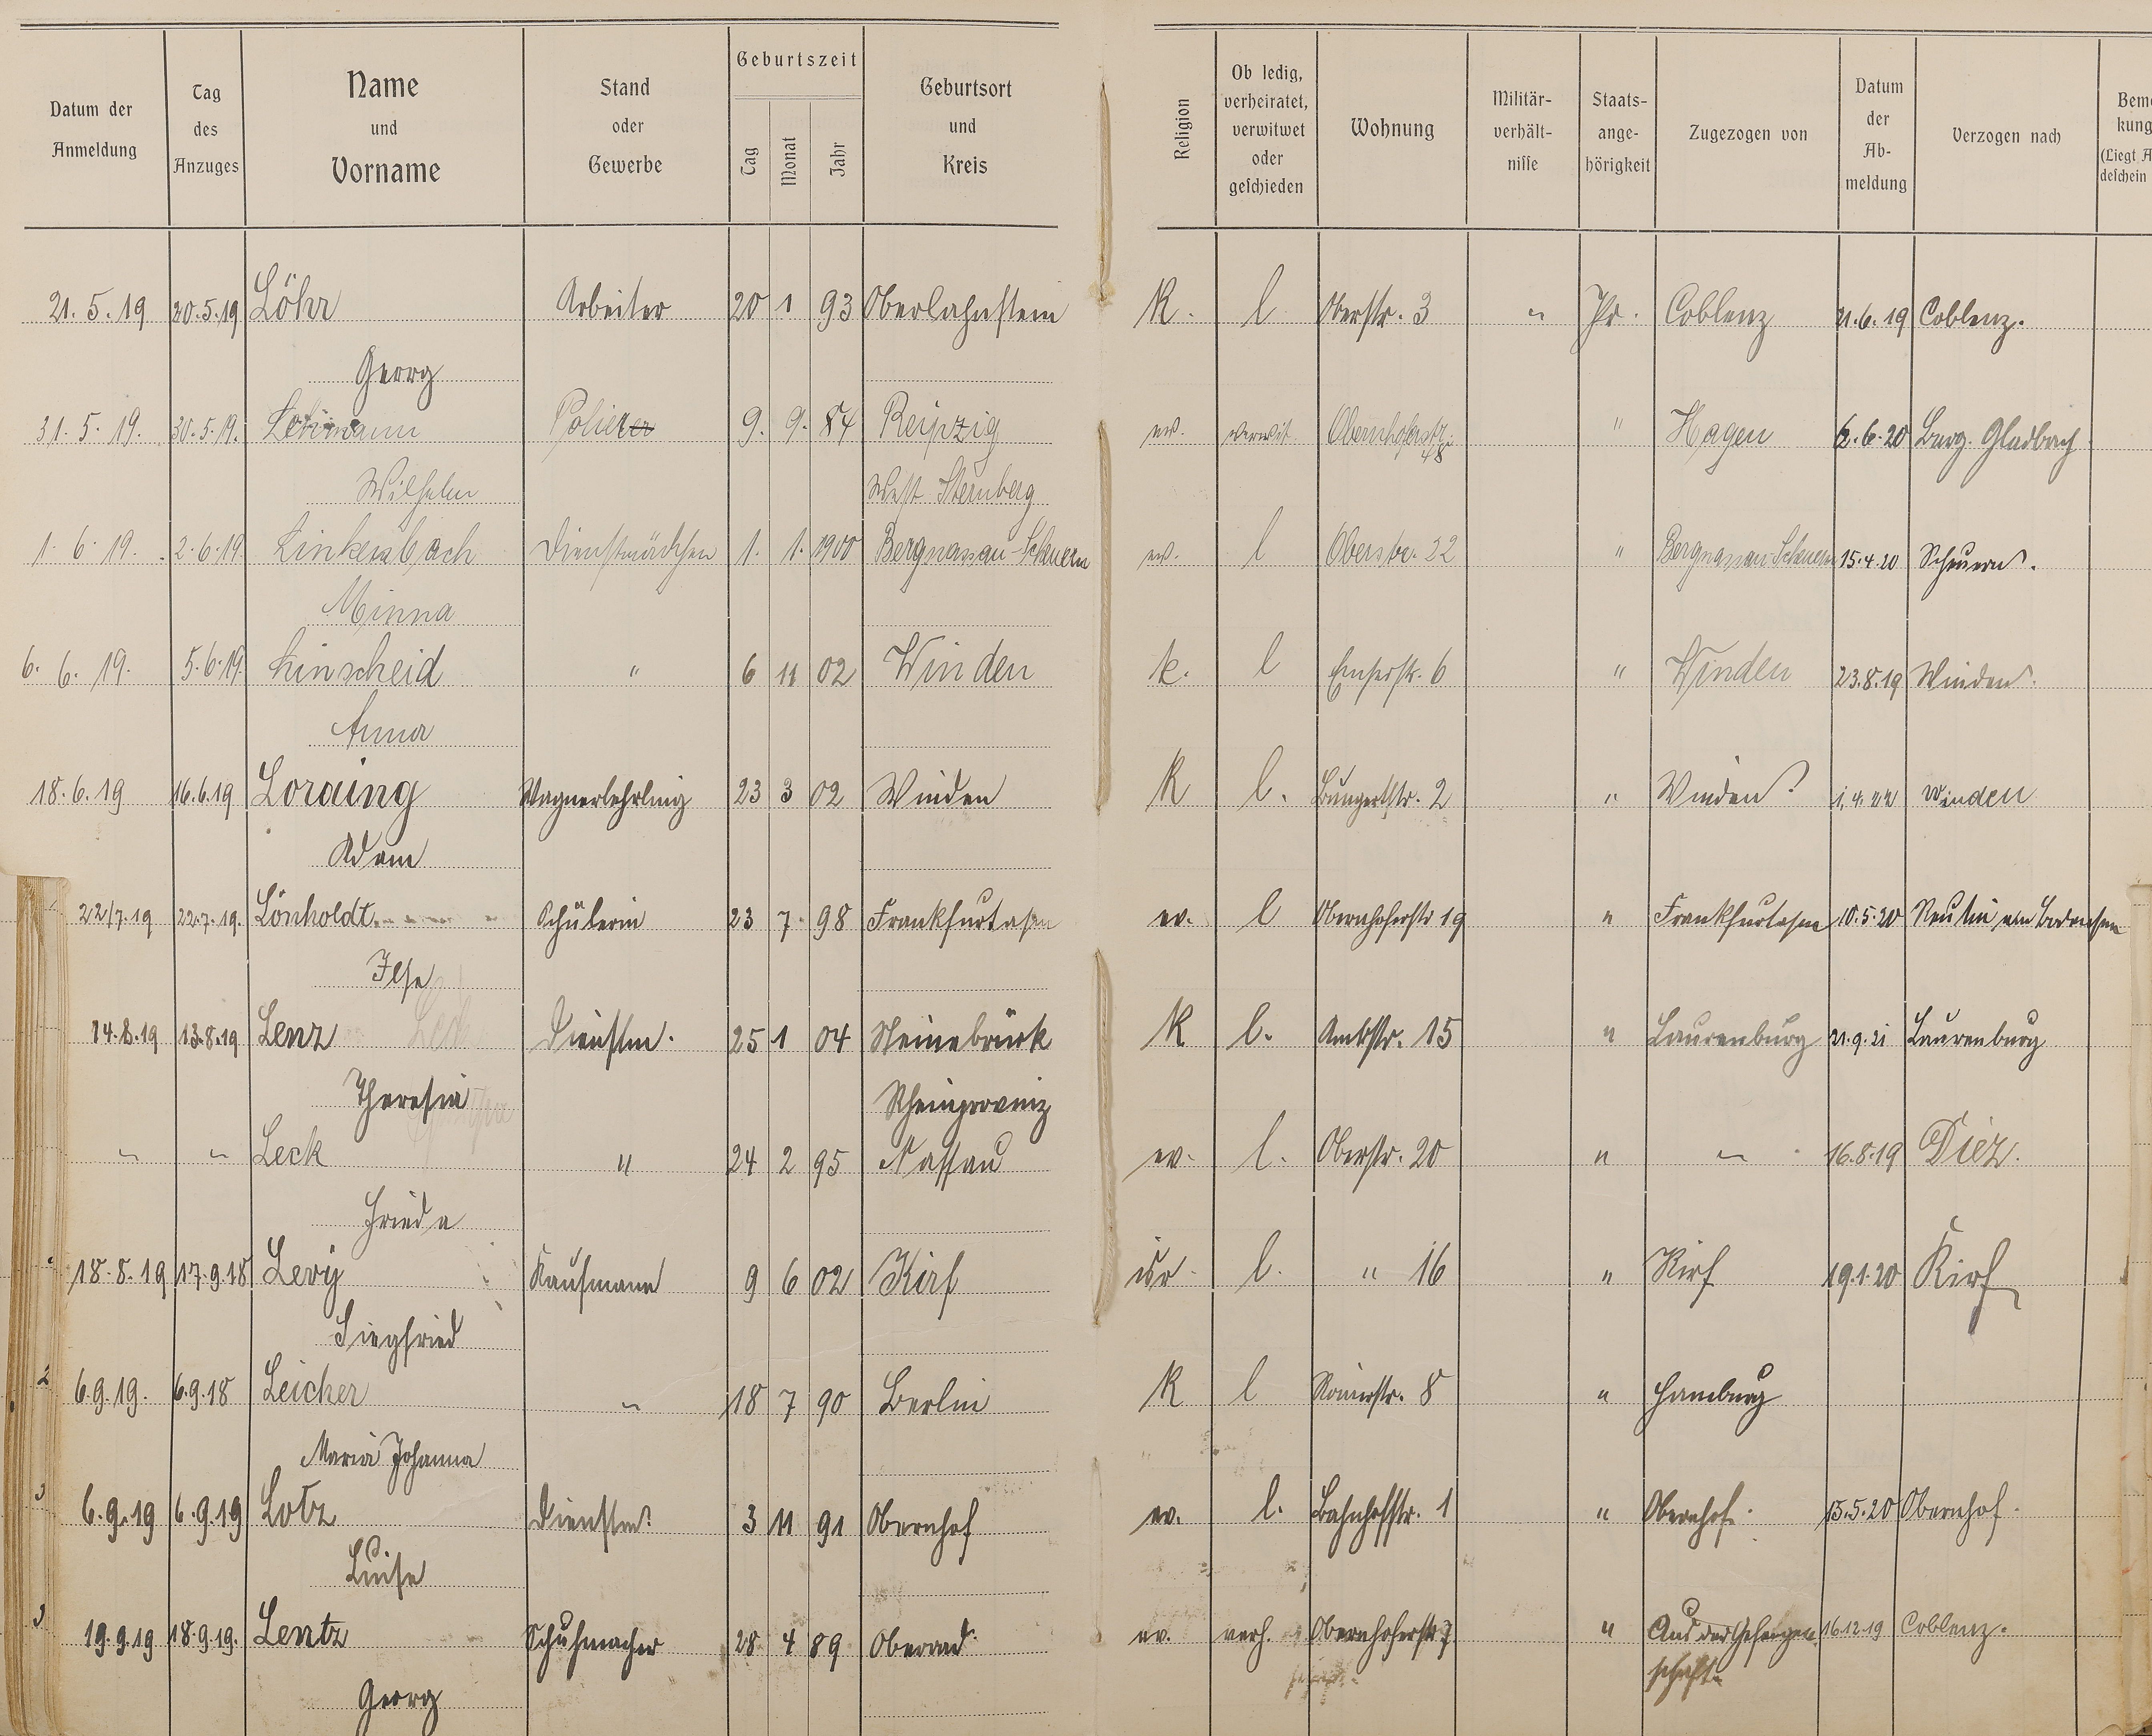 Datum der Anmeldung | Tag des Anzuges | Name und Vorname | Stand oder Gewerbe | Geburtszeit Tag Monat Jahr | Geburtsort und Kreis | Religion | Ob ledig, verheiratet, verwitwet oder geschieden | Wohnung | Militär-verhält-nisse | Staats-ange-hörigkeit | Zugezogen von | Datum der Ab-meldung | Verzogen nach
21. 5. 19 | 20. 5. 19 | Löhr | Arbeiter | 20 | 1 | 93 | Oberlahnstein | K. | l | Oberstr. 3 | " | Pr. | Coblenz | 21. 6. 19 | Coblenz.
Georg
31. 5. 19. | 30. 5. 19. | Lehmann | Polier | 9. | 9. | 84 | Reipzig | ev. | verwit. | Obernhoferstr. 48 | " | Hagen | 2. 6. 20 | Berg. Gladbach
Wilhelm | West Sternberg
1. 6. 19. | 2. 6. 19. | Linkersbach | Dienstmädchen | 1. | 1. | 1900 | Bergnassau-Scheuern | ev. | l | Oberstr. 22 | " | Bergnassau-Scheuern | 15. 4. 20 | Scheuern.
Minna
6. 6. 19. | 5. 6. 19. | Linscheid | " | 6 | 11 | 02 | Winden | k. | l | Emserstr. 6 | " | Winden | 23. 8. 19 | Winden.
Anna
18. 6. 19 | 16. 6. 19 | Loraing | Wagnerlehrling | 23 | 3 | 02 | Winden | K | l. | Bungertstr. 2 | " | Winden | 1. 4. 22 | Winden
Adam
22/7. 19 | 22. 7. 19. | Lönholdt | Schülerin | 23 | 7. | 98 | Frankfurt a/M | ev. | l | Obernhoferstr 19 | " | Frankfurt a/M | 10. 5. 20 | am Bodensee
Ilse
14. 8. 19 | 13. 8. 19 | Lenz | Dienstm. | 25 | 1 | 04 | Steinebrück | K | l. | Amtstr. 15 | " | Laurenburg | 21. 9. 21 | Laurenburg
Theresia | Rheinprovinz
" | " | Leck | " | 24 | 2 | 95 | Nassau | ev. | l. | Oberstr. 20 | " | " | 16. 8. 19 | Diez.
Frieda
18. 8. 19 | 17. 9. 18 | Levy | Kaufmann | 9 | 6 | 02 | Kirf | isr | l. | " 16 | " | Kirf | 19. 1. 20 | Kirf
Siegfried
2 | 6. 9. 19. | 6. 9. 18 | Leicher | " | 18 | 7 | 90 | Berlin | K | l | Römerstr. 8 | " | Hamburg
Maria Johanna
3 | 6. 9. 19 | 6. 9. 19 | Lotz | Dienstm. | 3 | 11 | 91 | Obernhof | ev. | l. | Bahnhofstr. 1 | " | Obernhof. | 15. 5. 20 | Obernhof.
Luise
3 | 19. 9. 19 | 18. 9. 19. | Lentz | Schuhmacher | 28 | 4 | 89 | Oberrad | ev. | verh. | Obernhoferstr. 7 | " | Aus der Gefangen | 16. 12. 19 | Coblenz.
schaft.
Georg